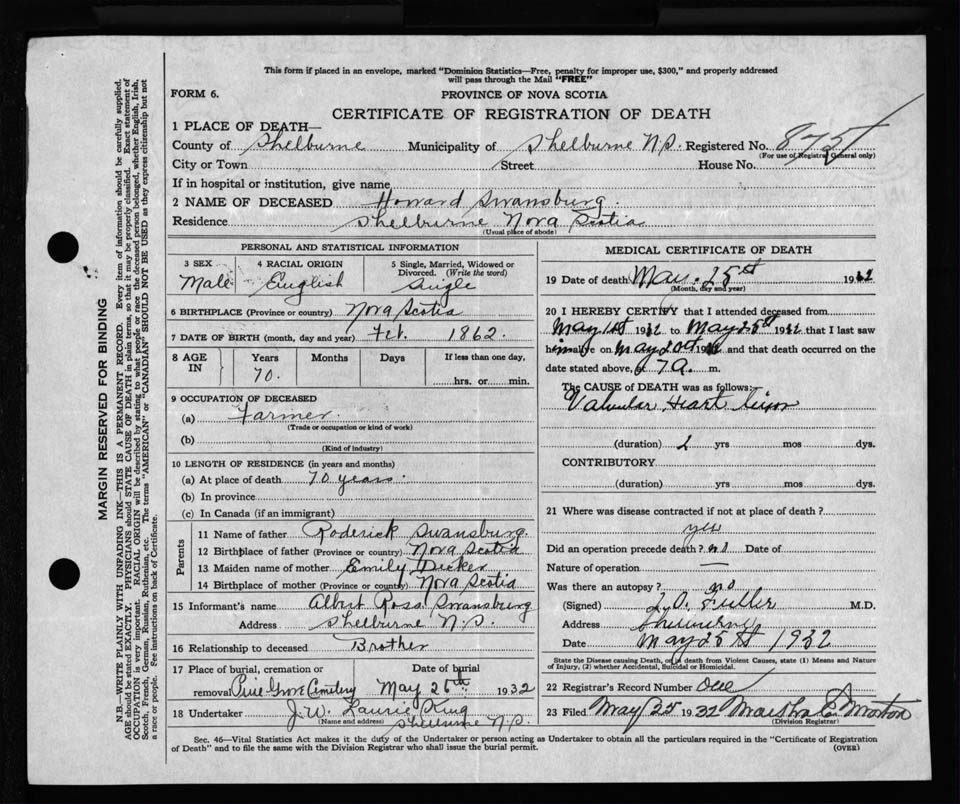 This form if placed in an envelope, marked "Dominion Statistics—Free, penalty for improper use, $300," and properly addressed
will pass through the Mail "FREE"
FORM 6.
PROVINCE OF NOVA SCOTIA
CERTIFICATE OF REGISTRATION OF DEATH
1 PLACE OF DEATH—
County of Shelburne Municipality of Shelburne N.S. Registered No.
(For use of Registrar General only)
City or Town Street House No.
If in hospital or institution, give name
2 NAME OF DECEASED Howard Swansburg.
Residence Shelburne Nova Scotia
(Usual place of abode)
PERSONAL AND STATISTICAL INFORMATION
3 SEX
Male
4 RACIAL ORIGIN
English
5 Single, Married, Widowed or
Divorced. (Write the word)
Single
6 BIRTHPLACE (Province or country) Nova Scotia
7 DATE OF BIRTH (month, day and year) Feb. 1862.
8 AGE IN
Years Months Days If less than one day,
70. hrs. or min.
9 OCCUPATION OF DECEASED
(a) Farmer.
(Trade or occupation or kind of work)
(b)
(Kind of industry)
10 LENGTH OF RESIDENCE (in years and months)
(a) At place of death 70 years.
(b) In province
(c) In Canada (if an immigrant)
Parents
11 Name of father Roderick Swansburg.
12 Birthplace of father (Province or country) Nova Scotia
13 Maiden name of mother Emily Decker
14 Birthplace of mother (Province or country) Nova Scotia
15 Informant's name Albert Ross Swansburg
Address Shelburne N.S.
16 Relationship to deceased Brother
17 Place of burial, cremation or Date of burial
removal Pine Grove Cemetery May 26th 1932
18 Undertaker J.W. Laurie King
(Name and address) Shelburne N.S.
MEDICAL CERTIFICATE OF DEATH
19 Date of death May. 25th 1932
(Month, day and year)
20 I HEREBY CERTIFY that I attended deceased from
May 1st 1932 to May 25th 1932 that I last saw
him alive on May 20th 1932 and that death occurred on the
date stated above, at 7 a. m.
The CAUSE OF DEATH was as follows:—
Valvular Heart
(duration) 2 yrs mos dys.
CONTRIBUTORY
(duration) yrs mos dys.
21 Where was disease contracted if not at place of death?
yes
Did an operation precede death? no Date of
Nature of operation —
Was there an autopsy? no
(Signed) Fuller M.D.
Address Shelburne
Date May 25th 1932
State the Disease causing Death, or in death from Violent Causes, state (1) Means and Nature
of Injury, (2) whether Accidental, Suicidal or Homicidal.
22 Registrar's Record Number One
23 Filed May 25 1932 Morton
(Division Registrar)
Sec. 46—Vital Statistics Act makes it the duty of the Undertaker or person acting as Undertaker to obtain all the particulars required in the "Certificate of Registration
of Death" and to file the same with the Division Registrar who shall issue the burial permit.
(OVER)
MARGIN RESERVED FOR BINDING
N.B.—WRITE PLAINLY WITH UNFADING INK—THIS IS A PERMANENT RECORD. Every item of information should be carefully supplied.
AGE should be stated EXACTLY. PHYSICIANS should STATE CAUSE OF DEATH in plain terms, so that it may be properly classified. Exact statement of
OCCUPATION is very important. RACIAL ORIGIN will be described by stating to what people or race the deceased person belonged, whether English, Irish,
Scotch, French, German, Russian, Ruthenian, etc. The terms "AMERICAN" or "CANADIAN" SHOULD NOT BE USED as they express citizenship but not
a race or people. See instructions on back of Certificate.